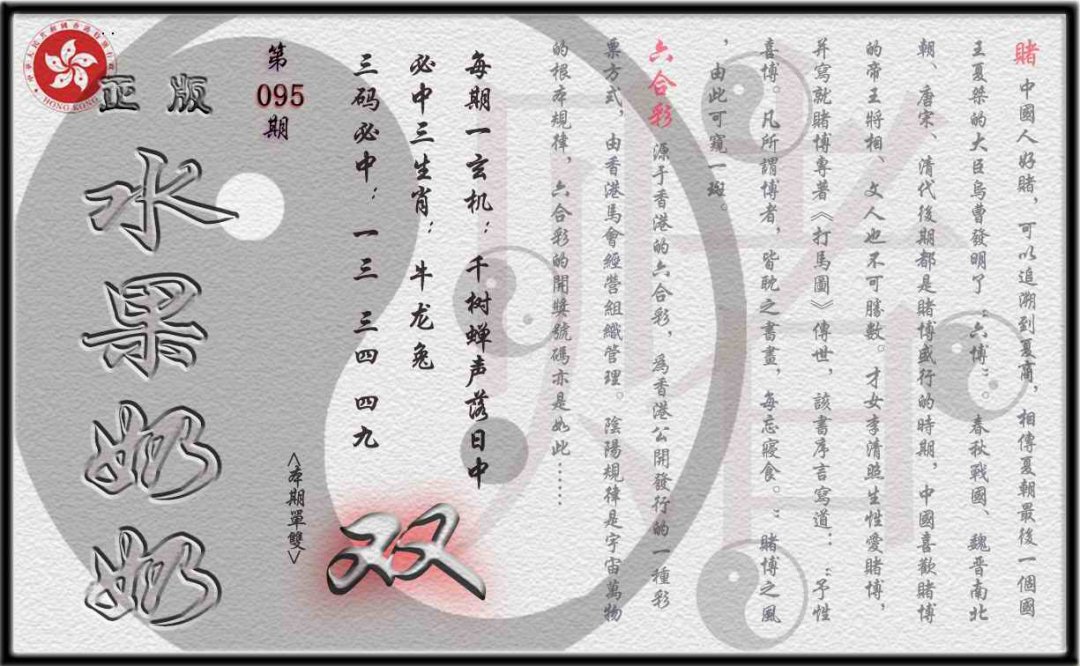 賭 中國人好賭，可以追溯到夏商，相傳夏朝最後一個國
王夏桀的大臣烏曹發明了“六博”。春秋戰國、魏晋南北
朝、唐宋、清代後期都是賭博盛行的時期，中國喜歡賭博
的帝王將相、文人也不可勝數。才女李清照生性愛賭博，
并寫就賭博專著《打馬圖》傳世，該書序言寫道：“予性
喜博。凡所謂博者，皆耽之書畫，每忘寢食。”賭博之風
，由此可窺一斑。
六合彩 源于香港的六合彩，爲香港公開發行的一種彩
票方式，由香港馬會經營組織管理。陰陽規律是宇宙萬物
的根本規律，六合彩的開獎號碼亦是如此……
每期一玄机：千树蝉声落日中
必中三生肖：牛龙兔
三码必中：一三 三四 四九
<本期單雙>
双
第
095
期
正版
水果奶奶
HONG KONG